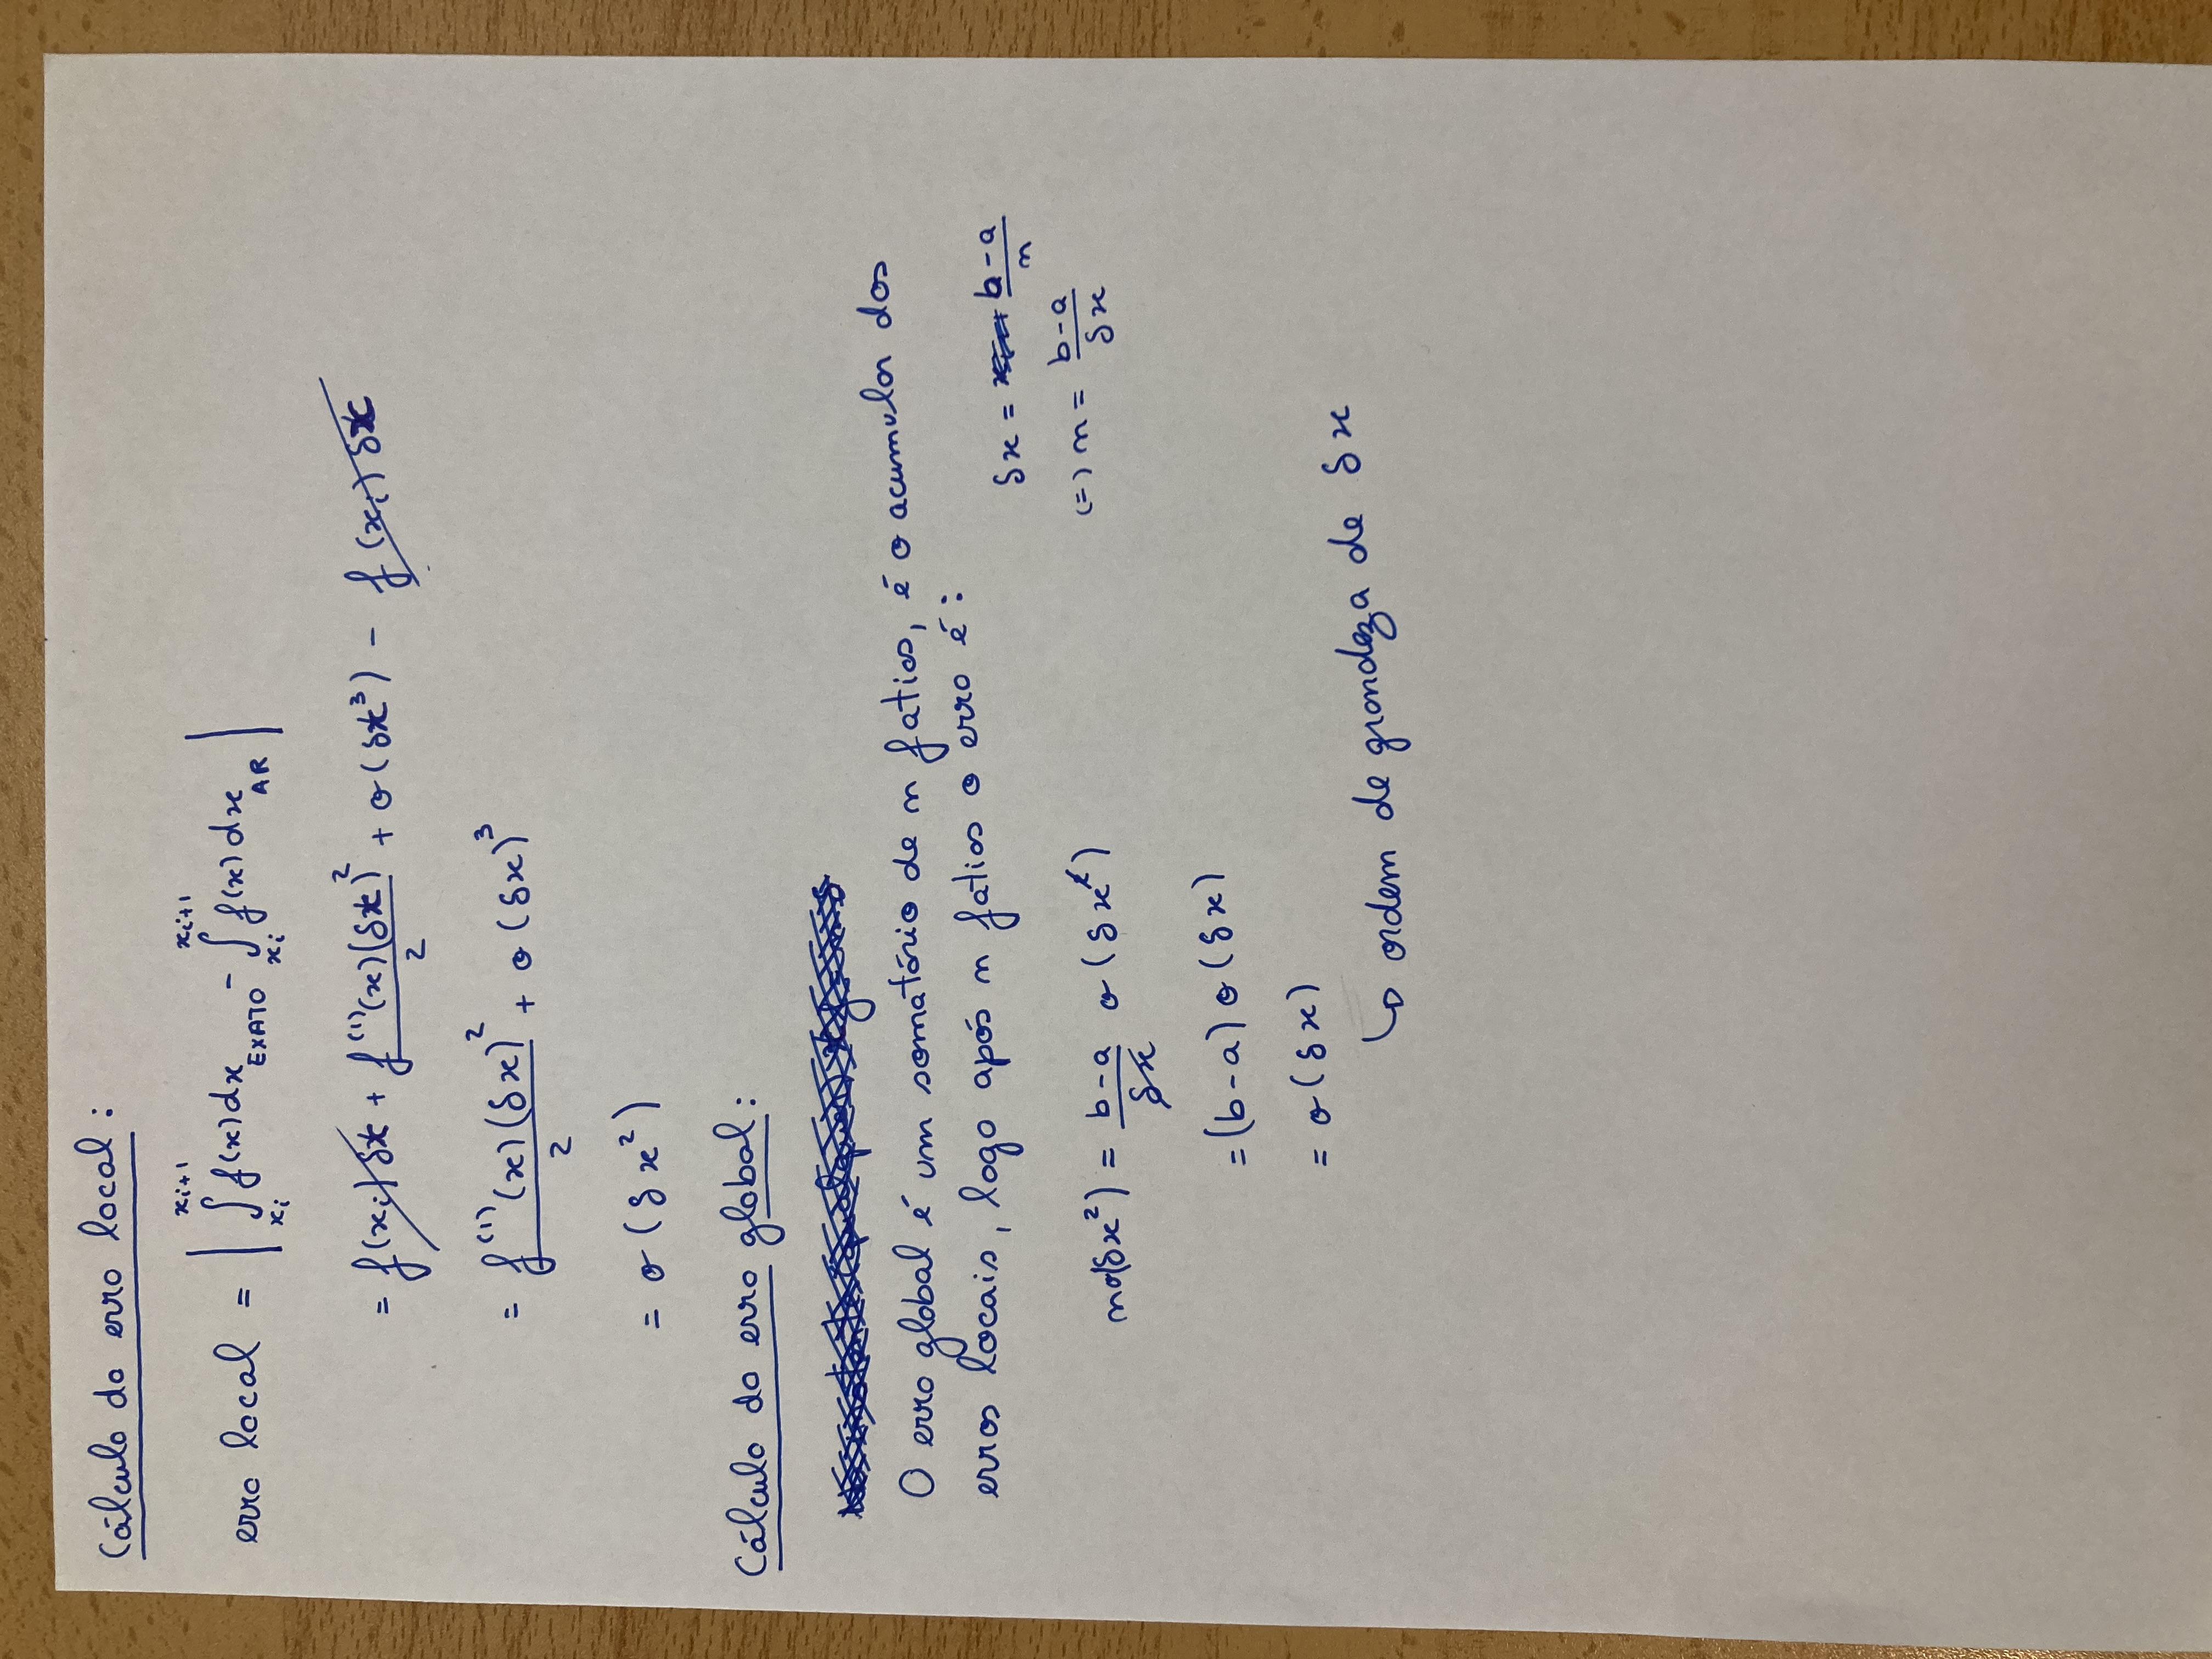 Cálculo do erro local:
erro local = | ∫_{xi}^{xi+1} f(x)dx_EXATO - ∫_{xi}^{xi+1} f(x)dx_AR |
= f(xi)δx + f⁽¹⁾(x)(δx)²/2 + o(δx³) - f(xi)δx
= f⁽¹⁾(x)(δx)²/2 + o(δx)³
= o(δx²)
Cálculo do erro global:
O erro global é um somatório de n fatias, é o acumular dos
erros locais, logo após n fatias o erro é:
δx = b-a/n
(=) n = b-a/δx
no(δx²) = b-a/δx o(δx²)
= (b-a) o(δx)
= o(δx)
↳ ordem de grandeza de δx